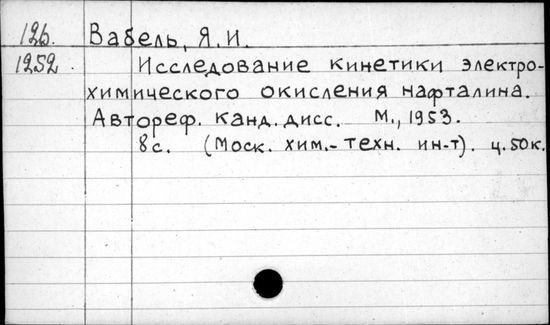 126. Вабель, Я.И.
1252. Исследование кинетики электро-
химического окисления нафталина.
Автореф. канд. дисс. М., 1953.
8с. (Моск. хим.-техн. ин-т). ц. 50к.